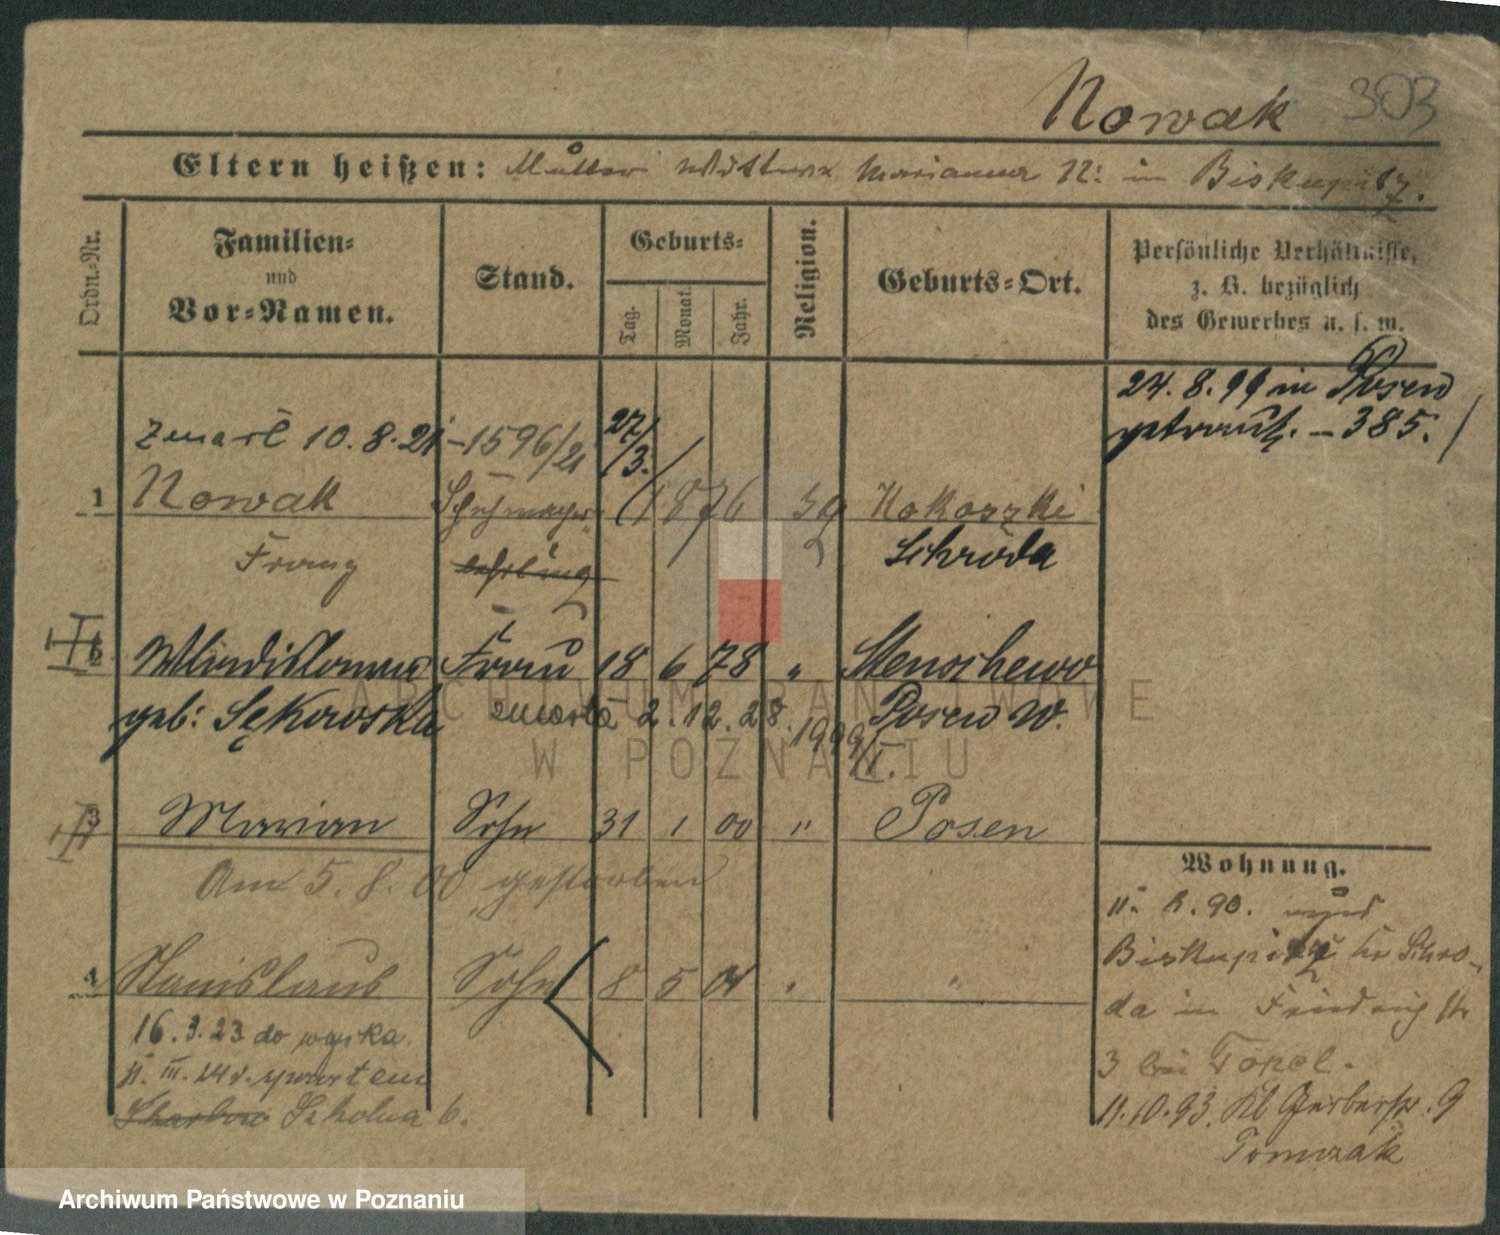 Nowak 303
Eltern heißen: Mutter Wittwe Marianna N: in Biskupitz.
Ordn.=Nr.
Familien= und Vor=Namen.
Stand.
Geburts=
Tag. Monat. Jahr.
Religion.
Geburts=Ort.
Persönliche Verhältnisse,
z. B. bezüglich
des Gewerbes u. s. w.
24.8.99 in Posen
getraut. – 385.
zmarł 10.8.21 – 1596/21 27/3.
1 Nowak Schuhmacher 1876 Kokoszki
Franz lehrling Schroda
2 Wladislawa Frau 18 6 78 " Stenschewo
geb: Sękowska zmarła 2.12.28. 1999/II. Posen W.
3 Marian Sohn 31 1 00 " Posen
Am 5.8.00 gestorben
4 Stanislaus Sohn 8 5 04 " "
16.3.23 do wojska.
z powrotem
Szkolna 6.
Wohnung.
11. 8. 90. und
Biskupitz Kr Schro-
da in Friedrichstr
3 bei Topel.
11.10.93. Kl Gerberstr. 9
Tomczak
ARCHIWUM PAŃSTWOWE
W POZNANIU
Archiwum Państwowe w Poznaniu